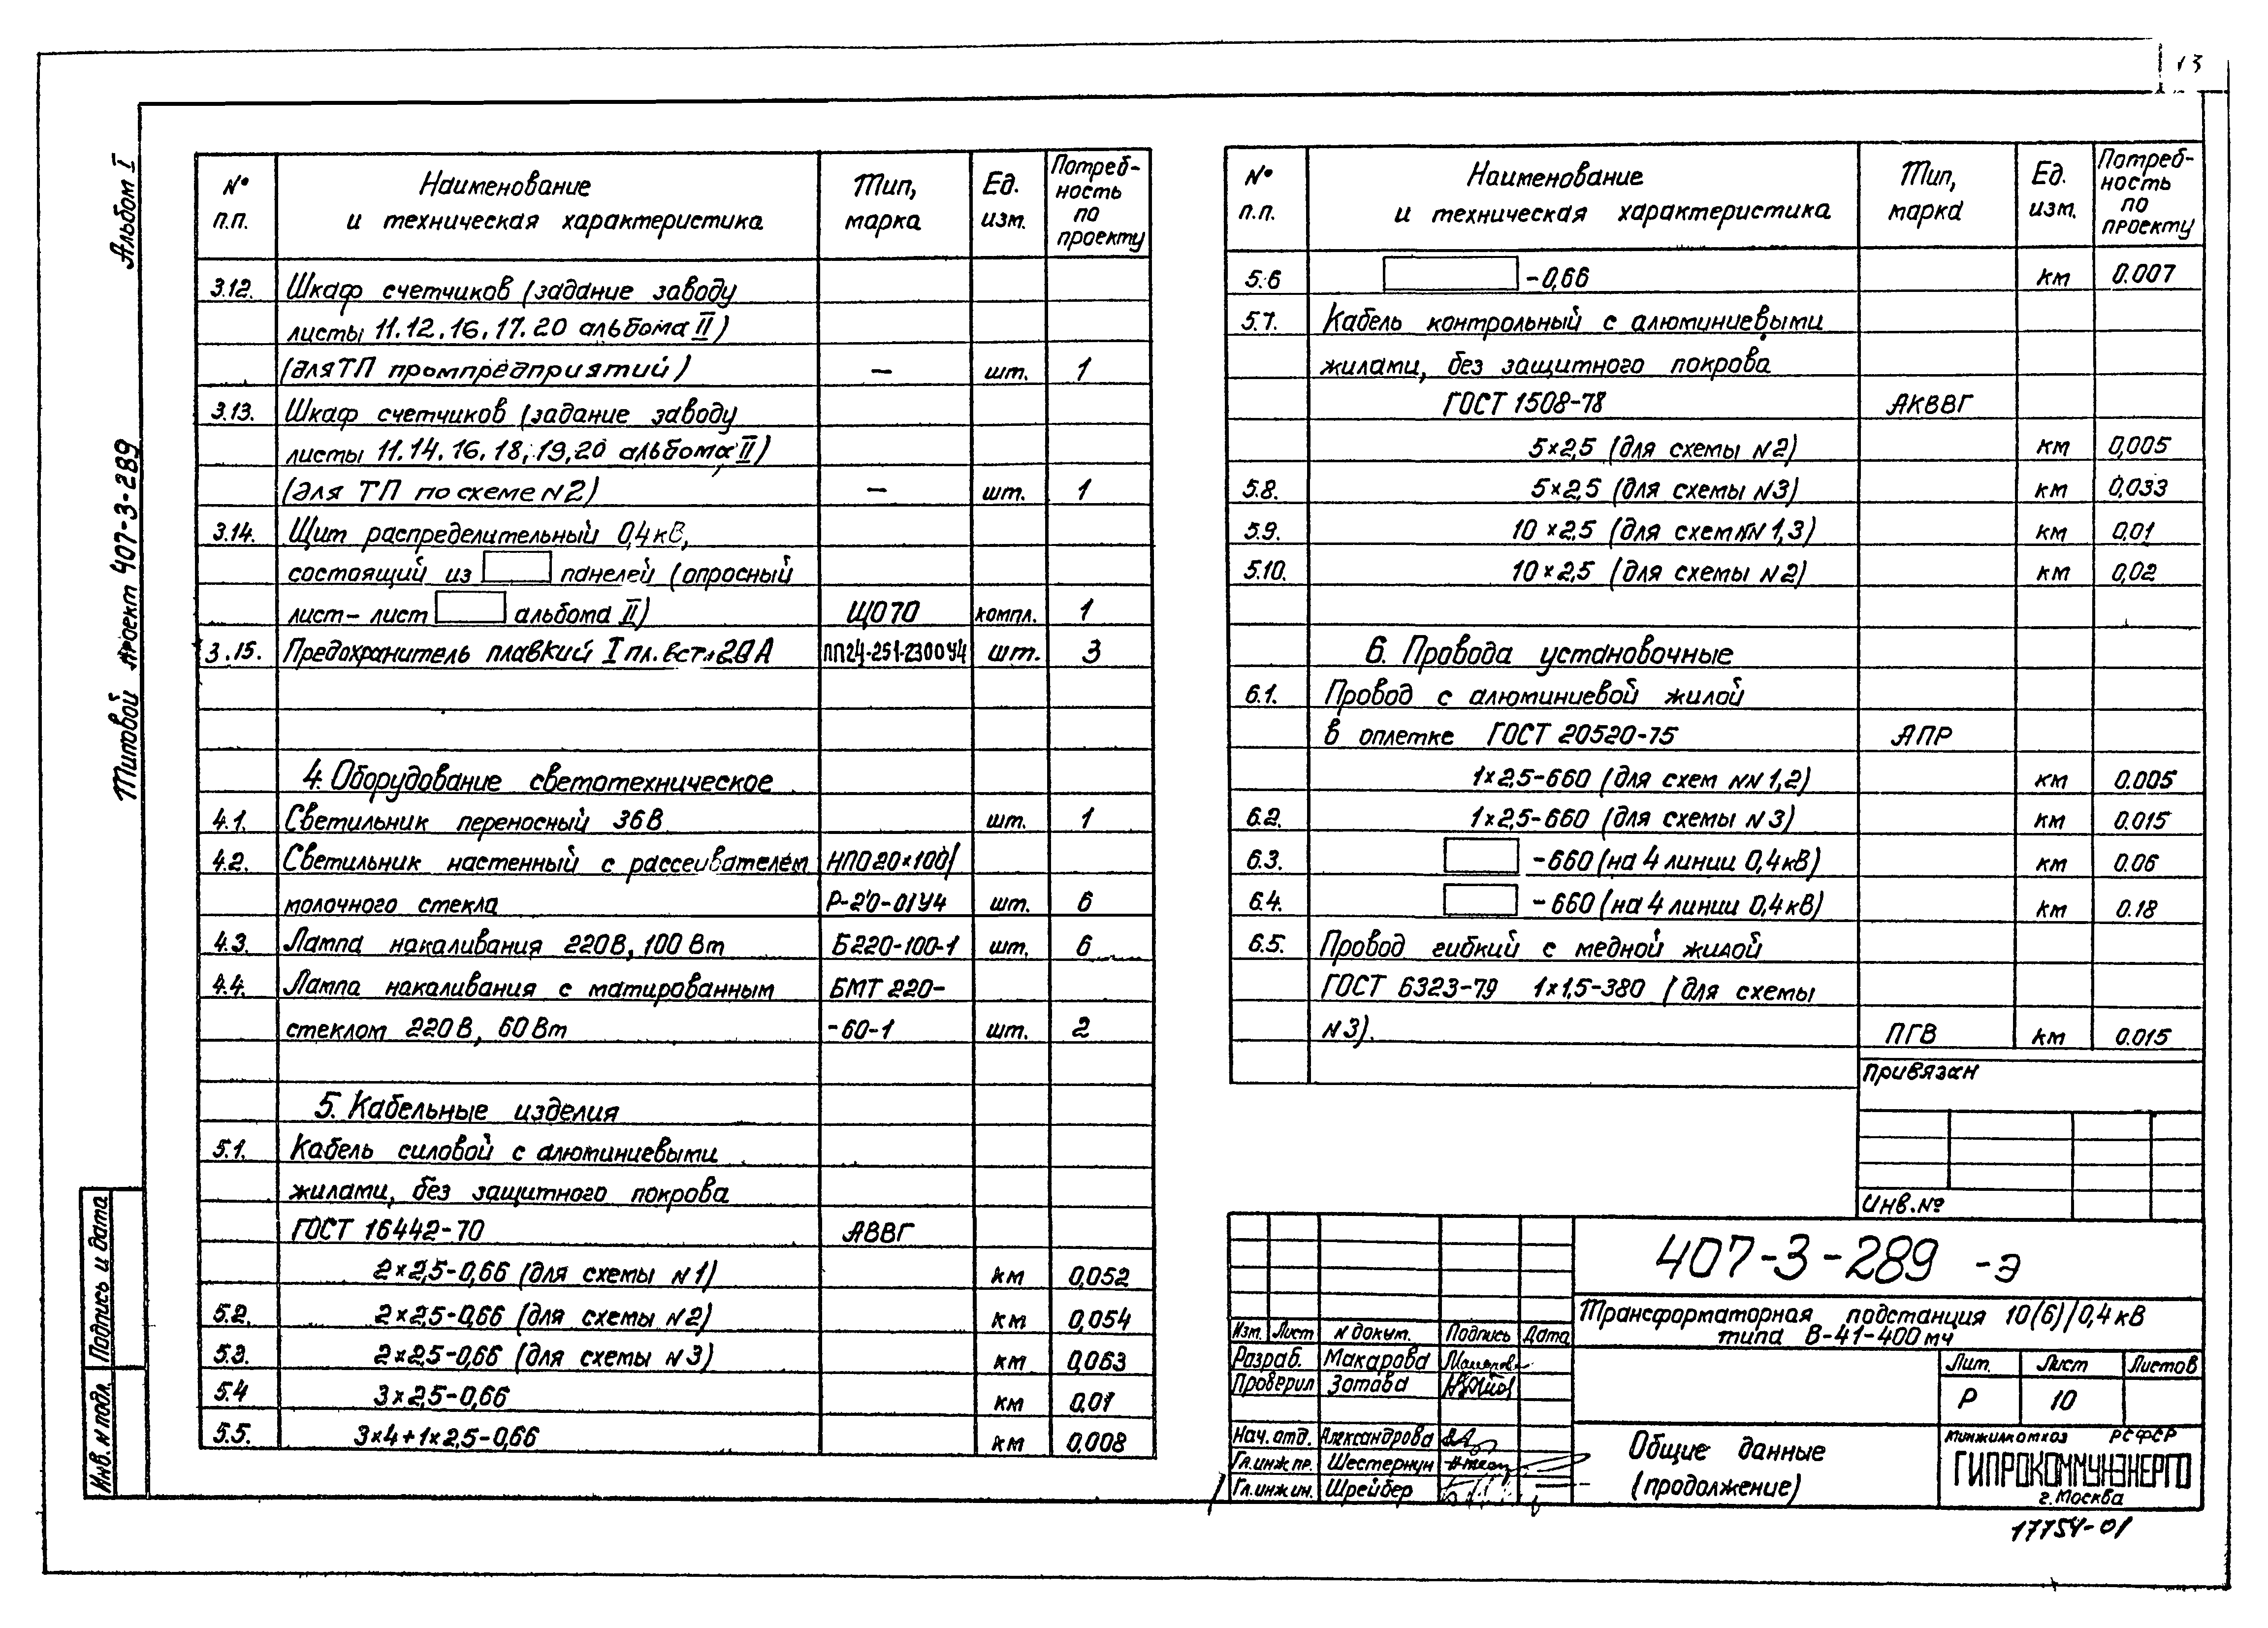 13
Альбом I
Типовой проект 407-3-289
Подпись и дата
Инв. N подл.
№ п.п. Наименование и техническая характеристика Тип, марка Ед. изм. Потреб-ность по проекту
3.12. Шкаф счетчиков (задание заводу
листы 11.12.16.17.20 альбома II)
(для ТП промпредприятий) – шт. 1
3.13. Шкаф счетчиков (задание заводу
листы 11.14.16.18,19,20 альбома II)
(для ТП по схеме N2) – шт. 1
3.14. Щит распределительный 0,4кВ,
состоящий из панелей (опросный
лист-лист альбома II) ЩО70 компл. 1
3.15. Предохранитель плавкий I пл.вст.20А ПП24-251-2300У4 шт. 3
4. Оборудование светотехническое
4.1. Светильник переносный 36В шт. 1
4.2. Светильник настенный с рассеивателем НПО20×100/
молочного стекла Р-20-01У4 шт. 6
4.3. Лампа накаливания 220В, 100Вт Б220-100-1 шт. 6
4.4. Лампа накаливания с матированным БМТ 220-
стеклом 220В, 60Вт -60-1 шт. 2
5. Кабельные изделия
5.1. Кабель силовой с алюминиевыми
жилами, без защитного покрова
ГОСТ 16442-70 АВВГ
2×2,5-0,66 (для схемы N1) км 0,052
5.2. 2×2,5-0,66 (для схемы N2) км 0,054
5.3. 2×2,5-0,66 (для схемы N3) км 0,063
5.4 3×2,5-0,66 км 0,01
5.5. 3×4+1×2,5-0,66 км 0,008
№ п.п. Наименование и техническая характеристика Тип, марка Ед. изм. Потреб-ность по проекту
5.6 -0,66 км 0.007
5.7. Кабель контрольный с алюминиевыми
жилами, без защитного покрова
ГОСТ 1508-78 АКВВГ
5×2,5 (для схемы N2) км 0,005
5.8. 5×2,5 (для схемы N3) км 0,033
5.9. 10×2,5 (для схем NN 1,3) км 0,01
5.10. 10×2,5 (для схемы N2) км 0,02
6. Провода установочные
6.1. Провод с алюминиевой жилой
в оплетке ГОСТ 20520-75 АПР
1×2,5-660 (для схем NN 1,2) км 0.005
6.2. 1×2,5-660 (для схемы N3) км 0.015
6.3. -660 (на 4 линии 0,4кВ) км 0.06
6.4. -660 (на 4 линии 0,4кВ) км 0.18
6.5. Провод гибкий с медной жилой
ГОСТ 6323-79 1×1,5-380 (для схемы
N3). ПГВ км 0.015
Привязан
Инв.№
407-3-289 -Э
Трансформаторная подстанция 10(6)/0,4кВ
типа В-41-400мч
Изм. Лист N докум. Подпись Дата
Разраб. Макарова
Проверил Зотова
Нач.отд. Александрова
Гл.инж.пр. Шестернин
Гл.инжин. Шрейбер
Общие данные
(продолжение)
Лит. Лист Листов
Р 10
Минжилкомхоз РСФСР
ГИПРОКОММУНЭНЕРГО
г.Москва
17754-01